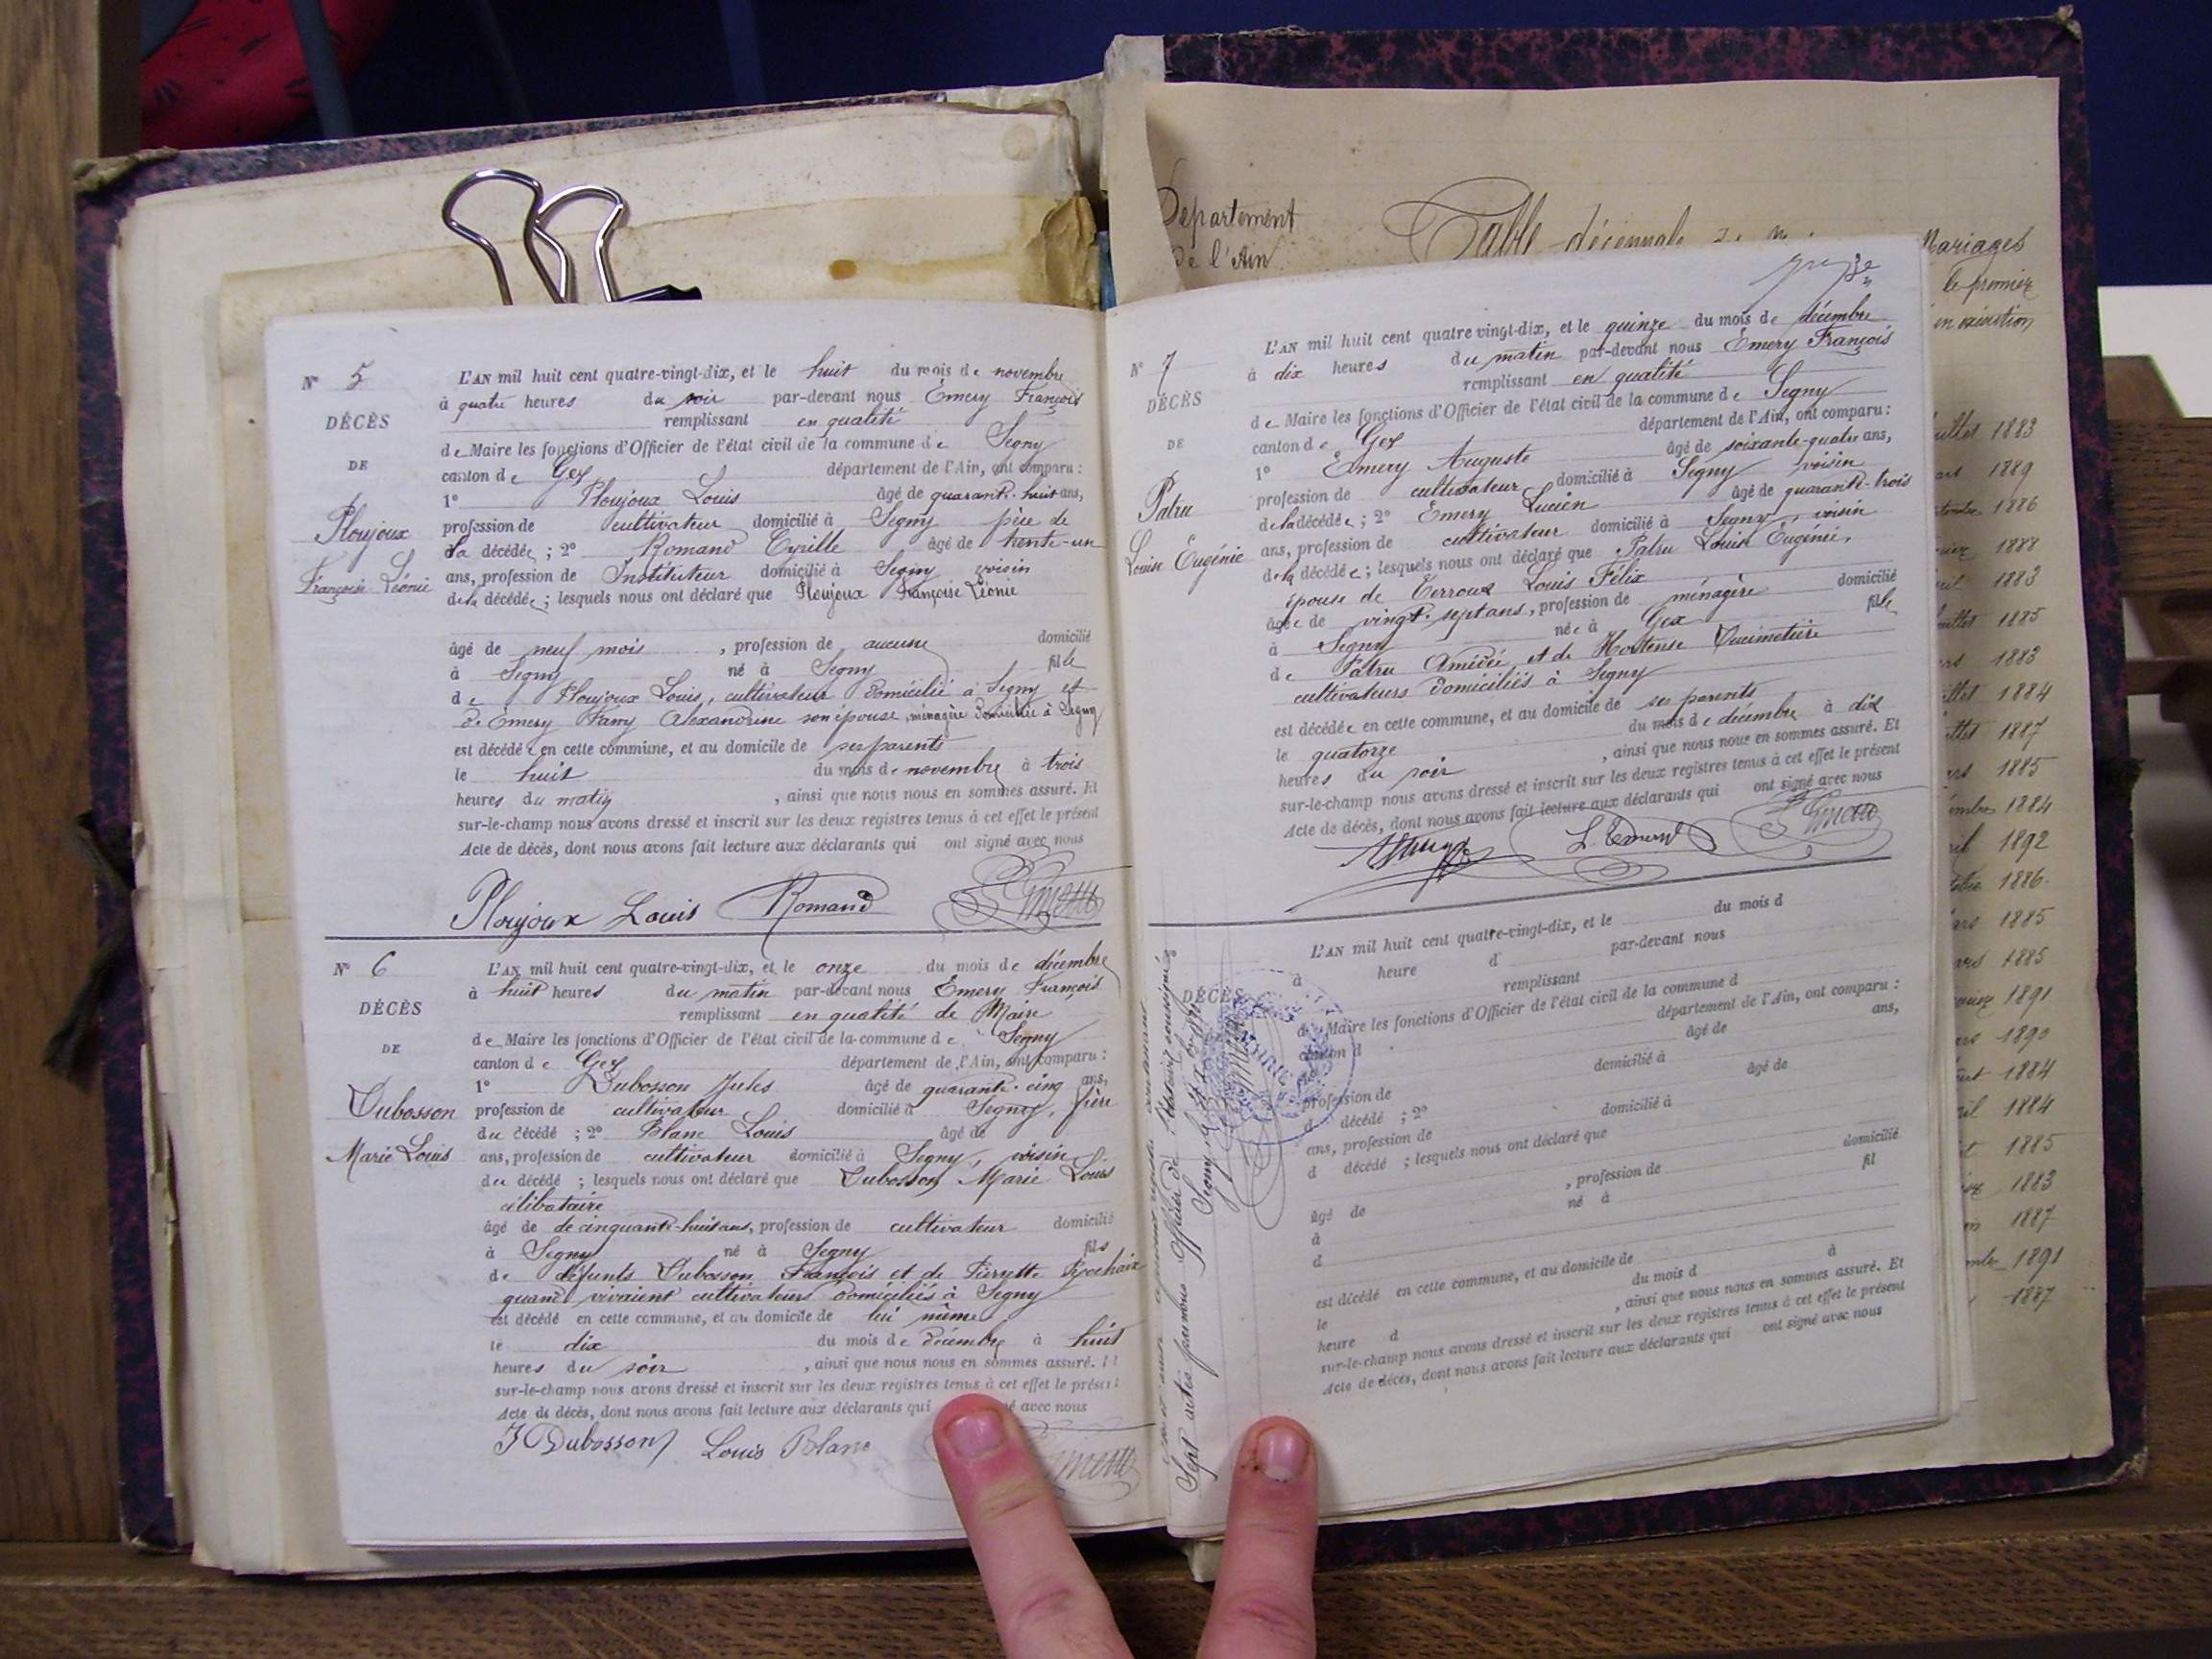 N° 5
DÉCÈS
DE
Ploujoux
Françoise Léonie
L'AN mil huit cent quatre-vingt-dix, et le huit du mois de novembre
à quatre heures du soir par-devant nous Émery François
remplissant en qualité
de Maire les fonctions d'Officier de l'état civil de la commune de Segny
canton de Gex département de l'Ain, ont comparu :
1° Ploujoux Louis âgé de quarante-huit ans,
profession de cultivateur domicilié à Segny père de
la décédée ; 2° Romand Cyrille âgé de trente-un
ans, profession de Instituteur domicilié à Segny voisin
de la décédée ; lesquels nous ont déclaré que Ploujoux Françoise Léonie
âgé de neuf mois, profession de aucune domicilié
à Segny né à Segny fille
de Ploujoux Louis, cultivateur domicilié à Segny et
de Émery Fany Alexandrine son épouse, ménagère domiciliée à Segny
est décédée en cette commune, et au domicile de ses parents
le huit du mois de novembre à trois
heures du matin, ainsi que nous nous en sommes assuré. Et
sur-le-champ nous avons dressé et inscrit sur les deux registres tenus à cet effet le présent
Acte de décès, dont nous avons fait lecture aux déclarants qui ont signé avec nous
Ploujoux Louis Romand
N° 6
DÉCÈS
DE
Dubosson
Marie Louis
L'AN mil huit cent quatre-vingt-dix, et le onze du mois de décembre
à huit heures du matin par-devant nous Émery François
remplissant en qualité de Maire
de Maire les fonctions d'Officier de l'état civil de la commune de Segny
canton de Gex département de l'Ain, ont comparu :
1° Dubosson Jules âgé de quarante-cinq ans,
profession de cultivateur domicilié à Segny, frère
du décédé ; 2° Blanc Louis âgé de
ans, profession de cultivateur domicilié à Segny, voisin
du décédé ; lesquels nous ont déclaré que Dubosson Marie Louis
célibataire
âgé de de cinquante-huit ans, profession de cultivateur domicilié
à Segny né à Segny fils
de défunts Dubosson François et de Pierrette
quand vivaient cultivateurs domiciliés à Segny
est décédé en cette commune, et au domicile de lui même
le dix du mois de décembre à huit
heures du soir, ainsi que nous nous en sommes assuré.
sur-le-champ nous avons dressé et inscrit sur les deux registres tenus à cet effet le présent
Acte de décès, dont nous avons fait lecture aux déclarants qui avec nous
J Dubosson Louis Blanc
Département
de l'Ain
Table décennale
Mariages
le premier
en exécution
N° 7
DÉCÈS
DE
Patru
Louise Eugénie
L'AN mil huit cent quatre vingt-dix, et le quinze du mois de décembre
à dix heures du matin par-devant nous Émery François
remplissant en qualité
de Maire les fonctions d'Officier de l'état civil de la commune de Segny
canton de Gex département de l'Ain, ont comparu :
1° Émery Auguste âgé de soixante-quatre ans,
profession de cultivateur domicilié à Segny voisin
de la décédée ; 2° Émery Lucien âgé de quarante-trois
ans, profession de cultivateur domicilié à Segny, voisin
de la décédée ; lesquels nous ont déclaré que Patru Louise Eugénie,
épouse de Terroux Louis Félix
âgée de vingt-sept ans, profession de ménagère domicilié
à Segny née à Gex fille
de Patru Amédée et de Hortense
cultivateurs domiciliés à Segny
est décédée en cette commune, et au domicile de ses parents
le quatorze du mois de décembre à dix
heures du soir, ainsi que nous nous en sommes assuré. Et
sur-le-champ nous avons dressé et inscrit sur les deux registres tenus à cet effet le présent
Acte de décès, dont nous avons fait lecture aux déclarants qui ont signé avec nous
L. Emery
DÉCÈS
L'AN mil huit cent quatre-vingt-dix, et le du mois d
à heure d par-devant nous
remplissant
de Maire les fonctions d'Officier de l'état civil de la commune d
canton d département de l'Ain, ont comparu :
âgé de ans,
profession de domicilié à
d décédé ; 2° âgé de
ans, profession de domicilié à
d décédé ; lesquels nous ont déclaré que
âgé de , profession de domicilié
à né à fil
d
est décédé en cette commune, et au domicile de
le du mois d à
heure d , ainsi que nous nous en sommes assuré. Et
sur-le-champ nous avons dressé et inscrit sur les deux registres tenus à cet effet le présent
Acte de décès, dont nous avons fait lecture aux déclarants qui ont signé avec nous
Sept actes par nous Officier de l'état civil soussigné
1883
1889
1886
1888
1883
1885
1883
1884
1887
1885
1884
1892
1886
1885
1885
1891
1890
1884
1884
1885
1883
1887
1891
1887